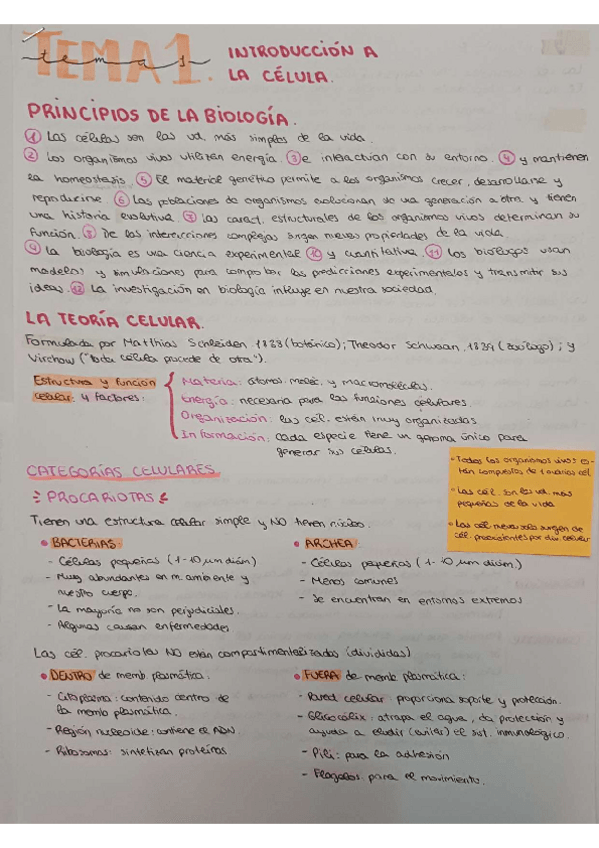 TEMA 1.
temas
INTRODUCCIÓN A
LA CÉLULA.
PRINCIPIOS DE LA BIOLOGÍA.
1 Las células son las ud. más simples de la vida.
2 Los organismos vivos utilizan energía. 3 e interactúan con su entorno. 4 y mantienen
la homeostasis. 5 El material genético permite a los organismos crecer, desarrollarse y
reproducirse. 6 Las poblaciones de organismos evolucionan de una generación a otra y tienen
una historia evolutiva. 7 Las caract. estructurales de los organismos vivos determinan su
función. 8 De las interacciones complejas surgen nuevas propiedades de la vida.
9 La biología es una ciencia experimental 10 y cuantitativa. 11 Los biólogos usan
modelos y simulaciones para comprobar las predicciones experimentales y transmitir sus
ideas. 12 La investigación en biología influye en nuestra sociedad.
LA TEORÍA CELULAR.
Formulada por Matthias Schleiden, 1838 (botánico); Theodor Schwann, 1839 (zoólogo); y
Virchow ("toda célula procede de otra").
Estructura y función
celular: 4 factores:
Materia: átomos, moléc. y macromoléculas.
Energía: necesaria para las funciones celulares.
Organización: las cél. están muy organizadas
Información: cada especie tiene un genoma único para
generar sus células.
- Todos los organismos vivos es-
tán compuestos de 1 o varias cél.
- Las cél. son las ud. más
pequeñas de la vida
- Las cél. nuevas solo surgen de
cél. preexistentes por div. celular
CATEGORÍAS CELULARES.
PROCARIOTAS
Tienen una estructura celular simple y NO tienen núcleo.
BACTERIAS:
- Células pequeñas (1-10 μm diám)
- Muy abundantes en m. ambiente y
nuestro cuerpo.
- La mayoría no son perjudiciales.
- Algunas causan enfermedades
ARCHEA:
- Células pequeñas (1-10 μm diám.)
- Menos comunes
- Se encuentran en entornos extremos
Las cél. procariotas NO están compartimentalizadas (divididas)
DENTRO de memb. plasmática.
- Citoplasma: contenido dentro de
la memb plasmática.
- Región nucleoide: contiene el ADN.
- Ribosomas: sintetizan proteínas
FUERA de memb plasmática:
- Pared celular: proporciona soporte y protección.
- Glicocálix: atrapa el agua, da protección y
ayuda a eludir (evitar) el sist. inmunológico.
- Pili: para la adhesión
- Flagelos: para el movimiento.